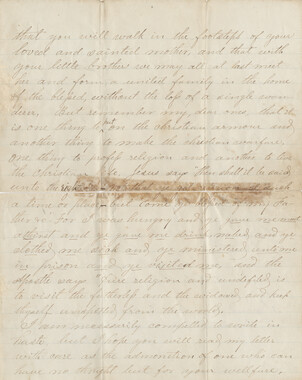 that you will walk in the footsteps of your
loved and sainted mother, and that with
your little brother we may all at last meet
her and form a united family in the home
of the blessed, without the loss of a single
dear. But remember my dear ones, that it
is one thing to on the christian armour and
another thing to make the christian warfare
one thing to profess religion and another to
the Christian life. Jesus says then shall be said
unto the
a time or Come
for I was hungry and ye gave me
and ye gave me drink naked, and ye
clothed me sick and ye ministered unto me
in prison and ye visited me, and the
Apostle says Pure religion and undefiled, is
to visit the fatherless and the widows, and keep
thyself unspotted from the world.
I am necessarily compelled to write in
haste, but I hope you will read my letter
with care as the admonition of one who can
have no thought but for your wellfare,